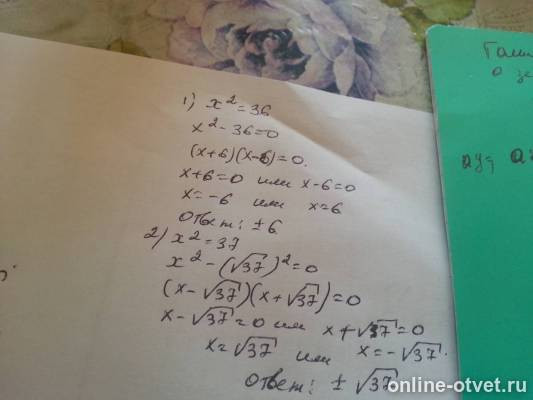 1) x² = 36
x² - 36 = 0
(x+6)(x-6) = 0.
x+6=0 или x-6=0
x=-6 или x=6
Ответ: ±6
2) x² = 37
x² - (√37)² = 0
(x-√37)(x+√37)=0
x-√37=0 или x+√37=0
x=√37 или x=-√37.
Ответ: ±√37
online-otvet.ru